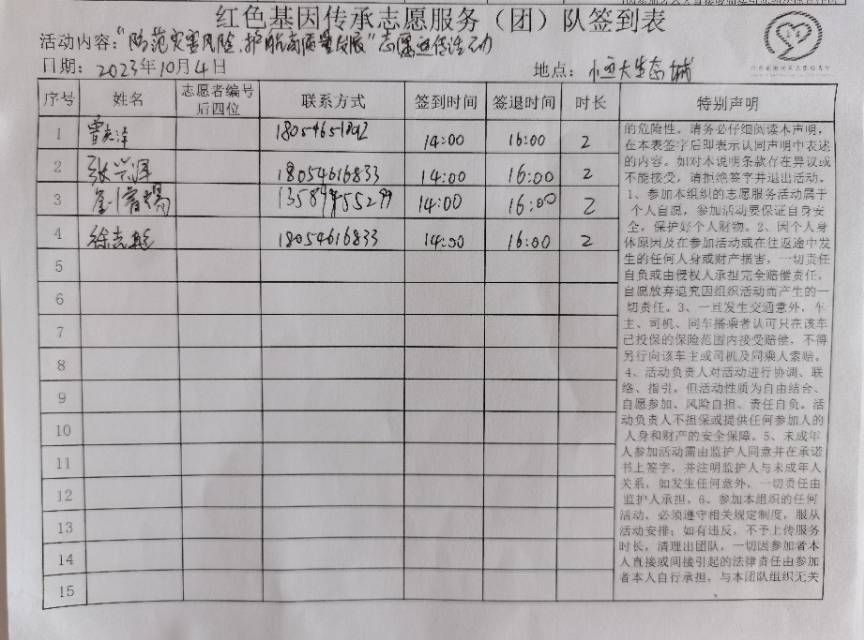 红色基因传承志愿服务（团）队签到表
活动内容：“防范灾害风险，护航高质量发展”志愿宣传活动
日期：2023年10月4日 地点：恒大生态城
序号 姓名 志愿者编号后四位 联系方式 签到时间 签退时间 时长 特别声明
1 14:00 16:00 2
2 张兴泽 18054616833 14:00 16:00 2
3 14:00 16:00 2
4 徐志 18054616833 14:00 16:00 2
5
6
7
8
9
10
11
12
13
14
15
的危险性，请务必仔细阅读本声明，
在本表签字后即表示认同声明中表述
的内容。如对本说明条款存在异议或
不能接受，请拒绝签字并退出活动。
1、参加本组织的志愿服务活动属于
个人自愿，参加活动要保证自身安
全，保护好个人财物。2、因个人身
体原因及在参加活动或在往返途中发
生的任何人身或财产损害，一切责任
自负或由侵权人承担完全赔偿责任，
自愿放弃追究因组织活动而产生的一
切责任。3、一旦发生交通意外，车
主、司机、同车搭乘者认可只在该车
已投保的保险范围内接受赔偿，不得
另行向该车主或司机及同乘人索赔。
4、活动负责人对活动进行协调、联
络、指引，但活动性质为自由结合、
自愿参加、风险自担、责任自负。活
动负责人不担保或提供任何参加人的
人身和财产的安全保障。5、未成年
人参加活动需由监护人同意并在承诺
书上签字，并注明监护人与未成年人
关系，如发生任何意外，一切责任由
监护人承担。6、参加本组织的任何
活动，必须遵守相关规定制度，服从
活动安排；如有违反，不予上传服务
时长，清理出团队，一切因参加者本
人直接或间接引起的法律责任由参加
者本人自行承担，与本团队组织无关